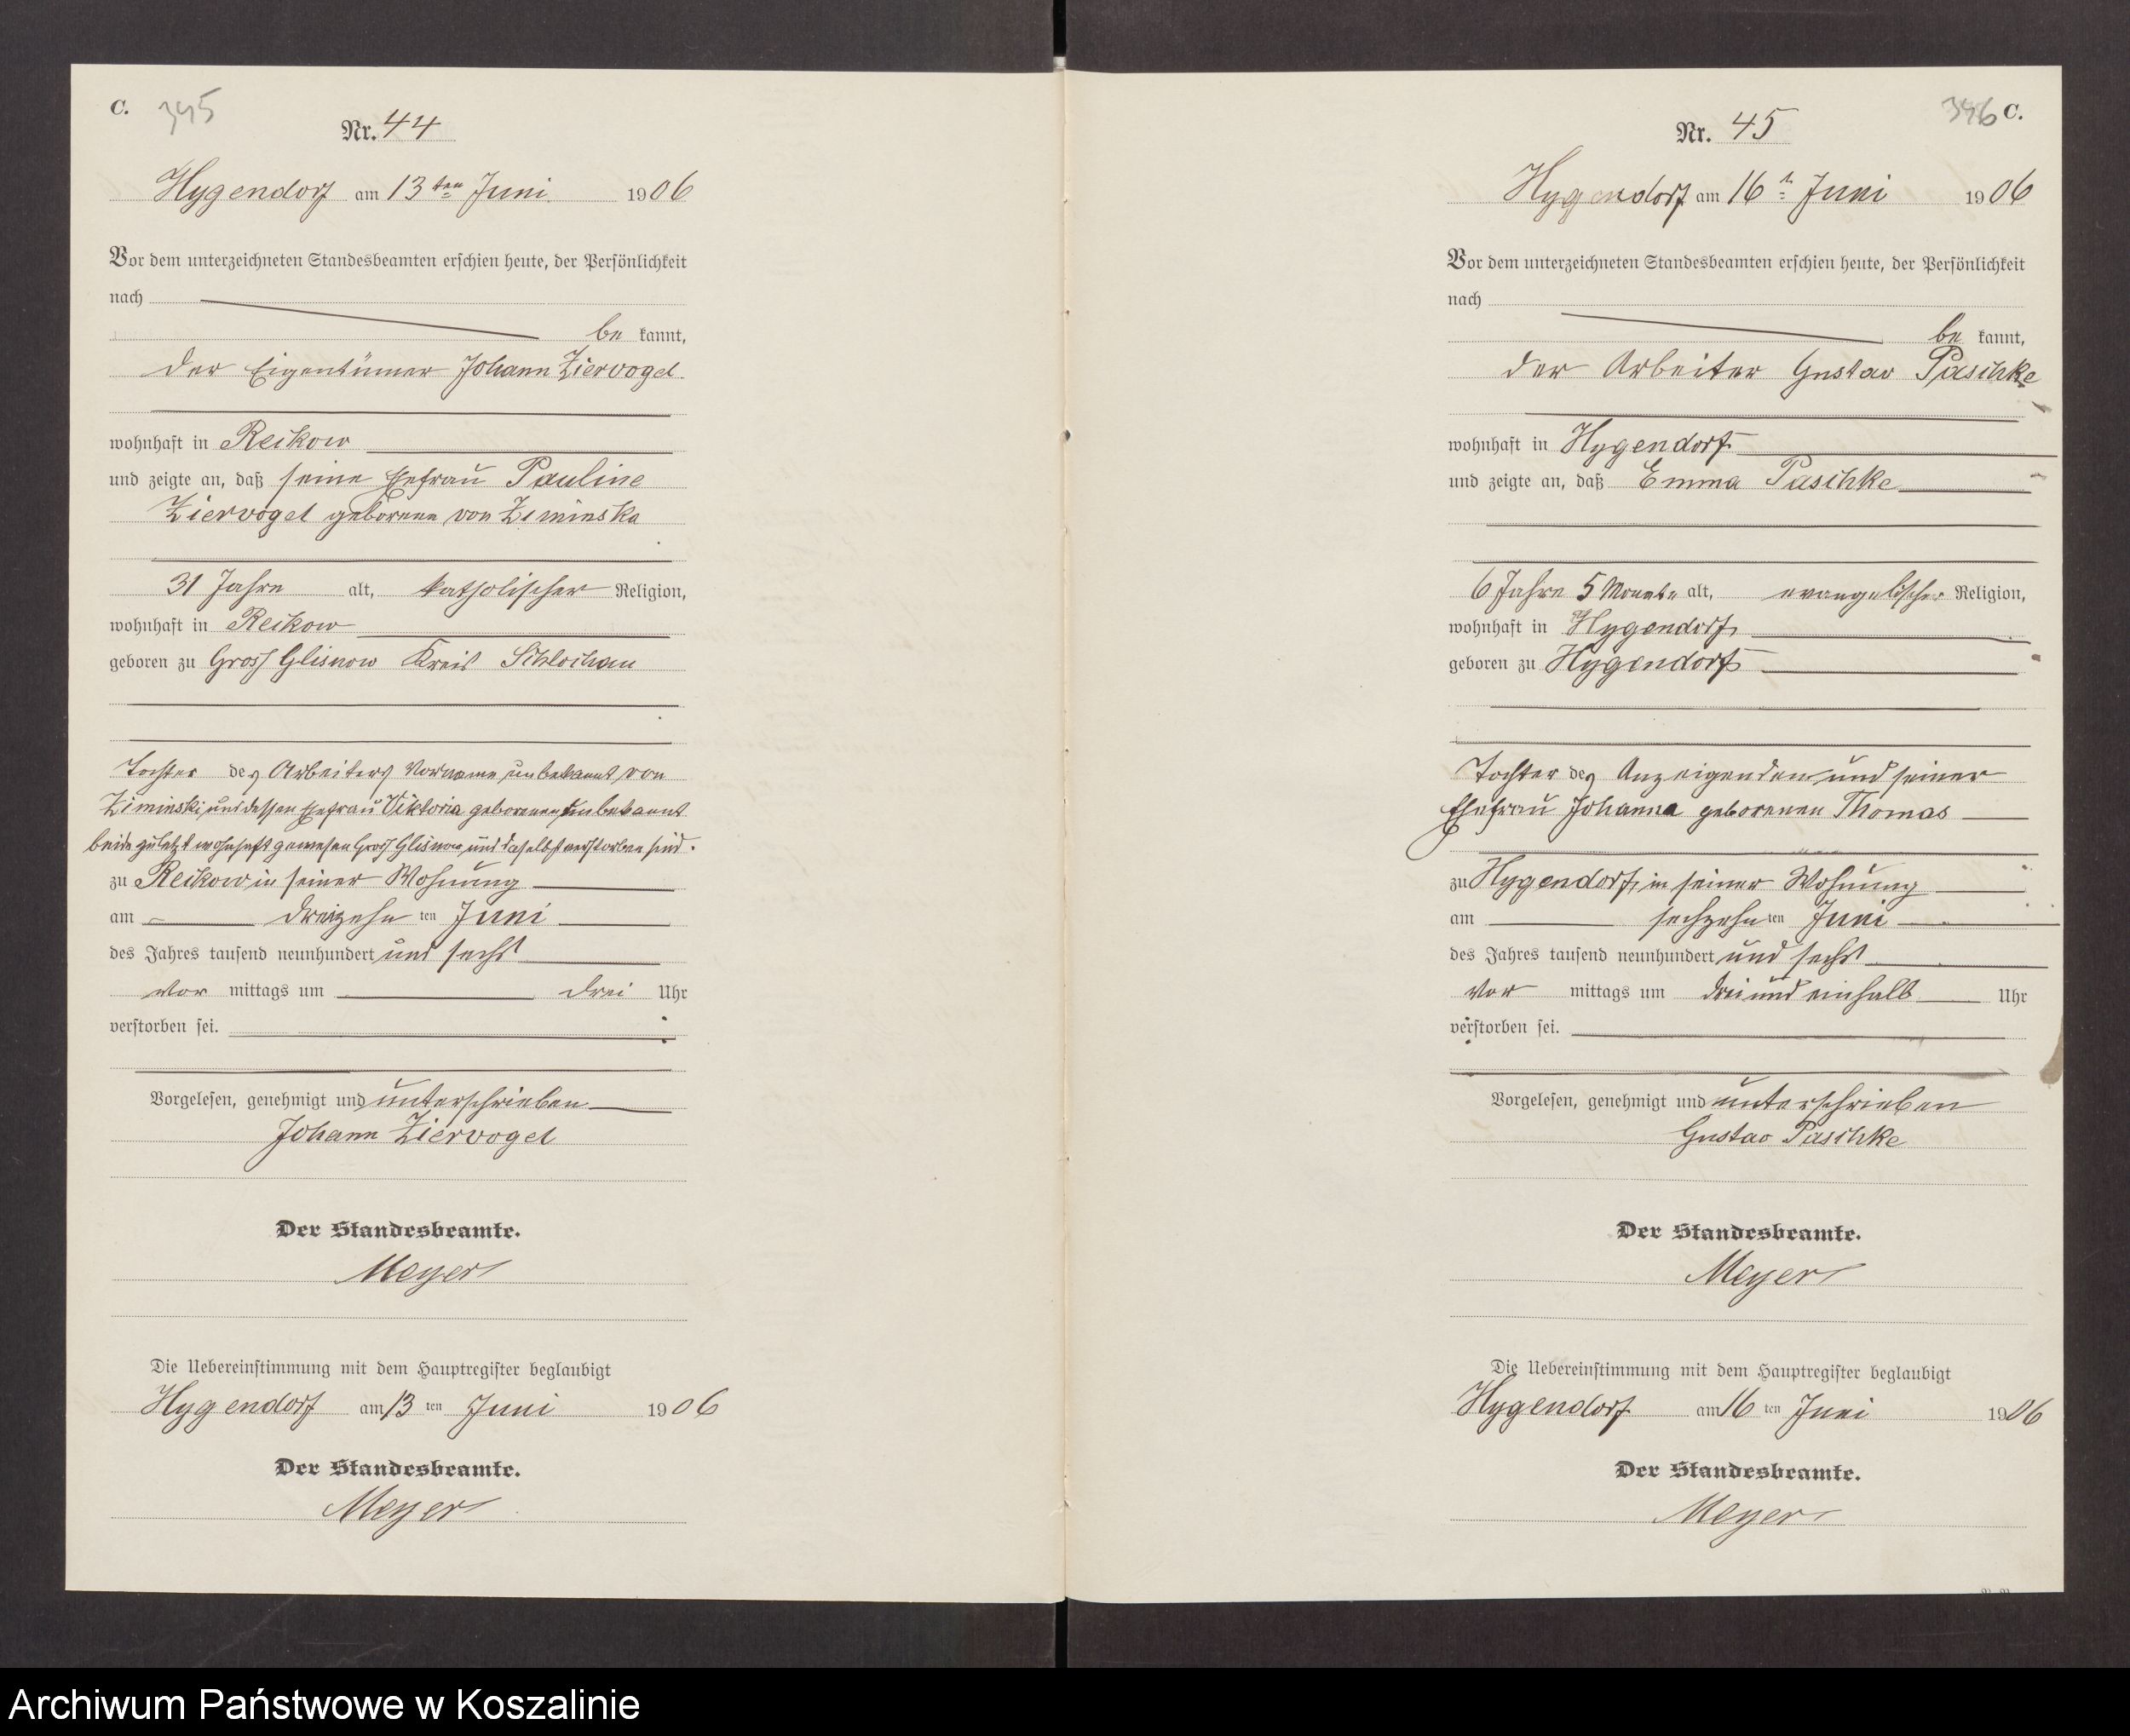 C. 345
Nr. 44
Hygendorf am 13ten Juni 1906
Vor dem unterzeichneten Standesbeamten erschien heute, der Persönlichkeit
nach
be kannt,
der Eigentümer Johann Ziervogel
wohnhaft in Reikow
und zeigte an, daß seine Ehefrau Pauline
Ziervogel geborene von Ziminska
31 Jahre alt, katholischer Religion,
wohnhaft in Reikow
geboren zu Gross Glisnow Kreis Schlochau
Tochter des Arbeiters Vorname unbekannt von
Ziminski und dessen Ehefrau Viktoria geborenen unbekannt
beide zuletzt wohnhaft gewesen Gross Glisnow und daselbst verstorben sind.
zu Reikow in seiner Wohnung
am dreizehn ten Juni
des Jahres tausend neunhundert und sechs
Vor mittags um drei Uhr
verstorben sei.
Vorgelesen, genehmigt und unterschrieben
Johann Ziervogel
Der Standesbeamte.
Meyer
Die Uebereinstimmung mit dem Hauptregister beglaubigt
Hygendorf am 13 ten Juni 1906
Der Standesbeamte.
Meyer
346 C.
Nr. 45
Hygendorf am 16n Juni 1906
Vor dem unterzeichneten Standesbeamten erschien heute, der Persönlichkeit
nach
be kannt,
der Arbeiter Gustav Paschke
wohnhaft in Hygendorf
und zeigte an, daß Emma Paschke
6 Jahre 5 Monate alt, evangelischer Religion,
wohnhaft in Hygendorf
geboren zu Hygendorf
Tochter des Anzeigenden und seiner
Ehefrau Johanna geborenen Thomas
zu Hygendorf, in seiner Wohnung
am sechzehn ten Juni
des Jahres tausend neunhundert und sechs
Vor mittags um drei und einhalb Uhr
verstorben sei.
Vorgelesen, genehmigt und unterschrieben
Gustav Paschke
Der Standesbeamte.
Meyer
Die Uebereinstimmung mit dem Hauptregister beglaubigt
Hygendorf am 16 ten Juni 1906
Der Standesbeamte.
Meyer
Archiwum Państwowe w Koszalinie